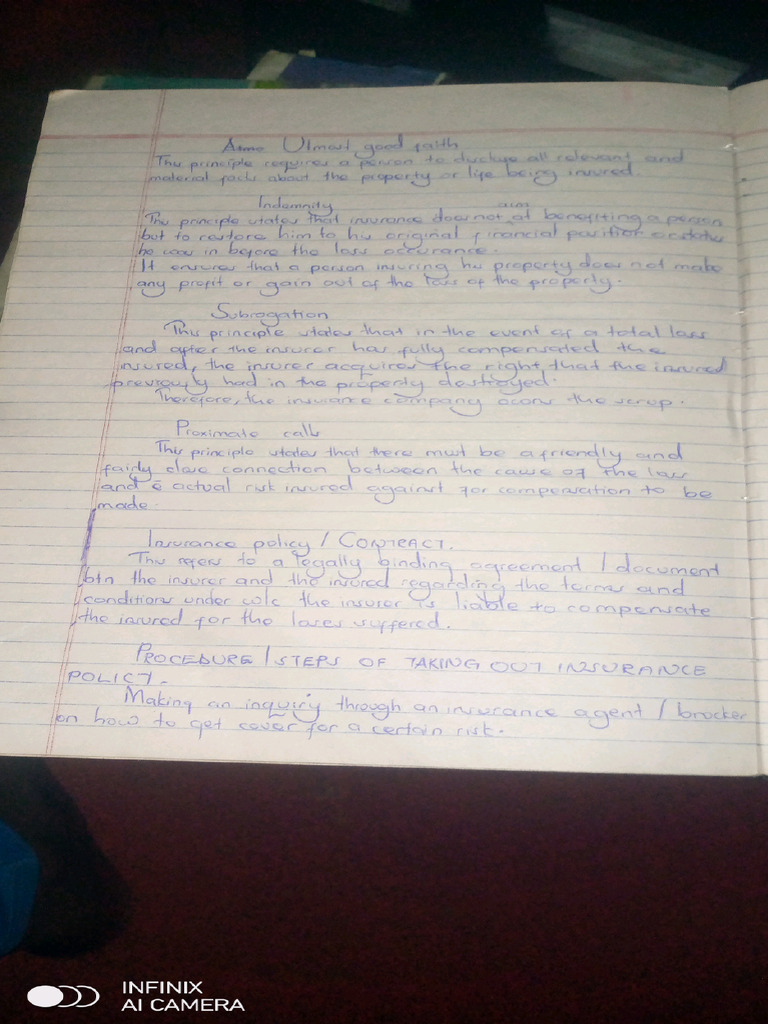 Utmost good faith
This principle requires a person to disclose all relevant and
material facts about the property or life being insured.
Indemnity
aim
This principle states that insurance does not at benefiting a person
but to restore him to his original financial position or status
he was in before the loss occurance.
It ensures that a person insuring his property does not make
any profit or gain out of the loss of the property.
Subrogation
This principle states that in the event of a total loss
and after the insurer has fully compensated the
insured, the insurer acquires the right that the insured
previously had in the property destroyed.
Therefore, the insurance company owns the scrap.
Proximate
This principle states that there must be a friendly and
fairly close connection between the cause of the loss
and ē actual risk insured against for compensation to be
made.
Insurance policy / CONTRACT.
This refers to a legally binding agreement / document
btn the insurer and the insured regarding the terms and
conditions under wic the insurer is liable to compensate
the insured for the loses suffered.
PROCEDURE / STEPS OF TAKING OUT INSURANCE
POLICY.
Making an inquiry through an insurance agent / brocker
on how to get cover for a certain risk.
INFINIX
AI CAMERA